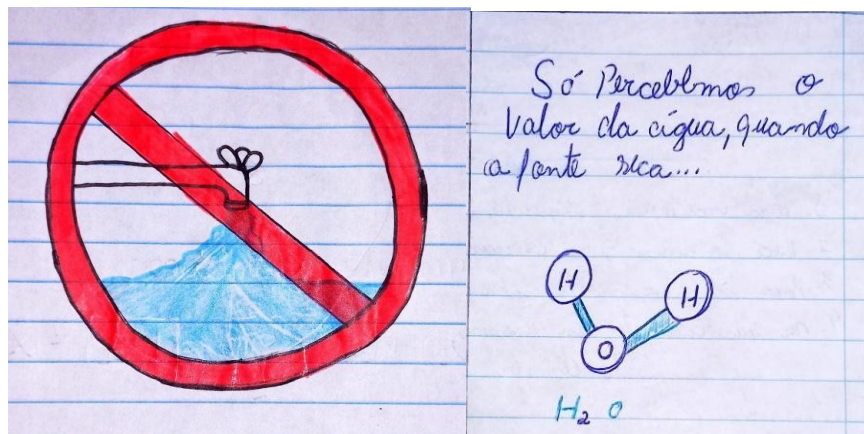 Só Percebemos o
Valor da água, quando
a fonte seca...
H
H
O
H₂ O